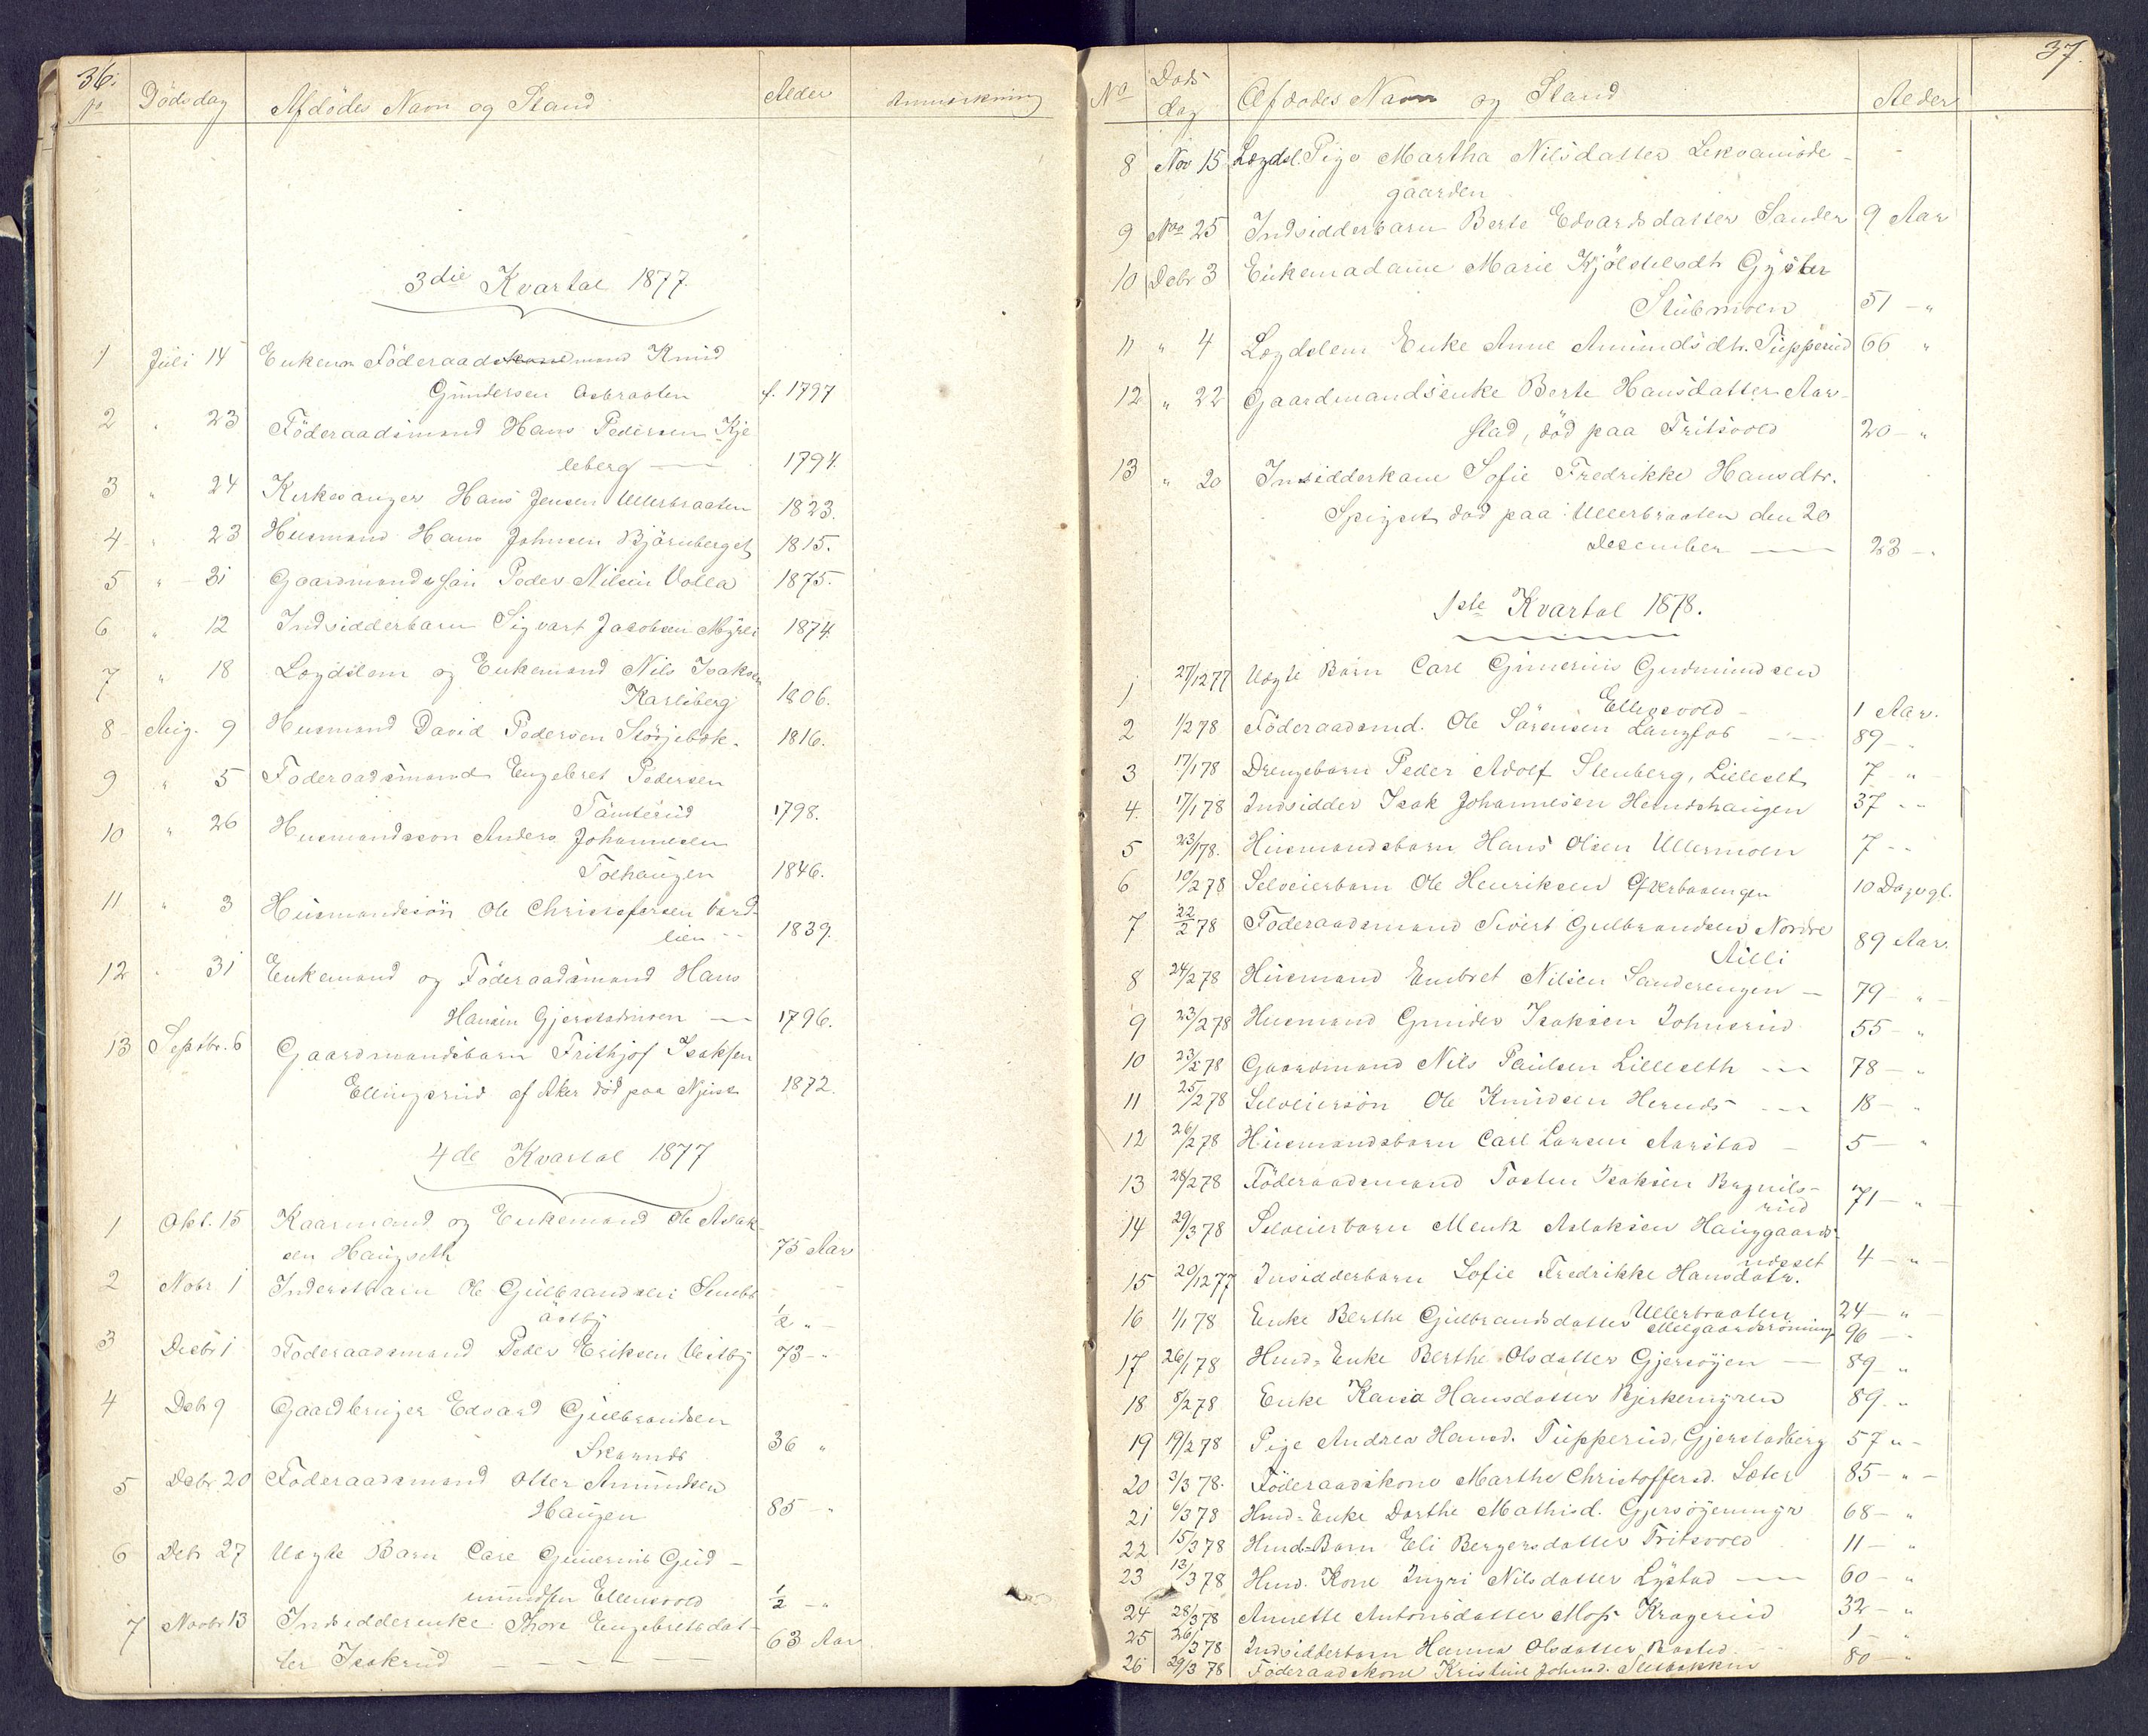 36.
No Dödsdag Afdödes Navn og Stand Alder Anmærkning
3die Kvartal 1877.
1 Juli 14 Enkem. Föderaadsmand Knud
Gundersen Asbraaten f. 1797
2 " 23 Föderaadsmand Hans Pedersen Kje
leberg — 1794.
3 " 24 Kirkesanger Hans Jensen Ullerbraaten 1823.
4 " 23 Husmand Hans Johnsen Björneberget 1815.
5 " 31 Gaardmandssön Peder Nilsen Volla 1875.
6 " 12 Indsidderbarn Sigvart Jacobsen Myrli 1874.
7 " 18 Lægdslem og Enkemand Nils Isaksen
Karlsberg 1806.
8 Aug. 9 Husmand David Pedersen 1816.
9 " 5 Föderaadsmand Engebret Pedersen
Tamterud 1798.
10 " 26 Husmandssön Anders Johannesen
Tothaugen 1846.
11 " 3 Husmandssön Ole Christofersen
lien - 1839.
12 " 31 Enkemand og Föderaadsmand Hans
Hansen — 1796.
13 Septbr. 6 Gaardmandsbarn Frithjof Isaksen
Ellingsrud af Aker död paa 1872.
4de Kvartal 1877
1 Okt. 15 Kaarmand og Enkemand Ole Aslak-
sen Haugseth 75 Aar
2 Nobr 1 Inderstbarn Ole Gulbrandsen
Östby ½ "
3 Decbr 1 Föderaadsmand Peder Eriksen Vestby 73 - "
4 Debr 9 Gaardbruger Edvard Gulbrandsen
36 "
5 Debr. 20 Föderaadsmand Otter Amundsen
Haugen 85 - "
6 Debr 27 Uægte Barn Carl Gunerius Gud-
mundsen Ellensvold ½ - "
7 Novbr 13 Indsidderenke Thore Engebretsdat-
ter Isakrud - - - - - 63 Aar
37.
No Döds
dag Afdödes Navn og Stand Alder
8 Nov 15 Lægdsl. Pige Martha Nilsdatter
gaarden
9 Nov 25 Indsidderbarn Berte Edvardsdatter Sander 9 Aar
10 Debr 3 Enkemadame Marie Gyster
Stubmoen 51 - "
11 " 4 Lægdslem Enke Anne Amundsdtr. Tupperud 66 "
12 " 22 Gaardmandsenke Berte Hansdatter Aar-
stad, död paa Fritsvold 20 - "
13 " 20 Insidderkone Sofie Fredrikke Hansdtr.
Spigset, död paa Ullerbraaten den 20
December — 23 - "
1ste Kvartal 1878.
1 27/12 77 Uægte Barn Carl Gunerius Gudmundsen
Ellensvold - 1 Aar.
2 1/2 78 Föderaadsmd. Ole Sörensen Langfos 89 - "
3 17/1 78 Drengebarn Peder Adolf Stenberg, Lilleset 7 - "
4. 17/1 78 Indsidder Isak Johannesen Herudshaugen 37 - "
5 23/1 78. Husmandsbarn Hans Olsen Ullermoen 7 - "
6 10/2 78 Selveierbarn Ole Henriksen 10 Dage gl.
7 22/2 78 Föderaadsmand Sivert Gulbrandsen Nordre
89 Aar.
8 24/2 78 Husmand Embret Nilsen Sanderengen — 79 - "
9 23/2 78 Husmand Gunder Isaksen Johnsrud 55 - "
10 23/2 78 Gaardmand Nils Paulsen Lilleseth 78 - "
11 25/2 78 Selveiersön Ole Knudsen Heruds 18 - "
12 26/2 78 Husmandsbarn Carl Larsen Aarstad - 5 - "
13 28/2 78 Föderaadsmand Tosten Isaksen Bagnils-
rud 71 - "
14 29/3 78 Selveierbarn Menk Aslaksen Hauggaard
4 - "
15 20/12 77 Insidderbarn Sofie Fredrikke Hansdatr.
Ullerbraaten 24 - "
16 1/1 78 Enke Berthe Gulbrandsdatter Mellgaardsrönning 96 - "
17 26/1 78 Husd. Enke Berthe Olsdatter Gjersöyen — 89 "
18 8/2 78 Enke Karia Hansdatter Bjerkemyren 89. "
19 19/2 78 Pige Andrea Hansd. Tupperud, Gjerstadberg 57 " -
20 3/3 78. Föderaadskone Marthe Christoffersd. Sæter 85 - " -
21 6/3 78 Hmd-Enke Dorthe Mathisd. Gjersöyenmyr 68 - "
22 15/3 78 Hmd-Barn Eli Bergersdatter Fritsvold 11 - "
23 13/3 78 Hmd. Kone Ingri Nilsdatter Lystad — 60 - "
24 28/3 78 Annette Antonsdatter Moss Kragerud 32 - "
25 26/3 78 Indsidderbarn Hanna Olsdatter Basted 1 - "
26 29/3 78 Föderaadskone Kristine Johnsd. 80 - "